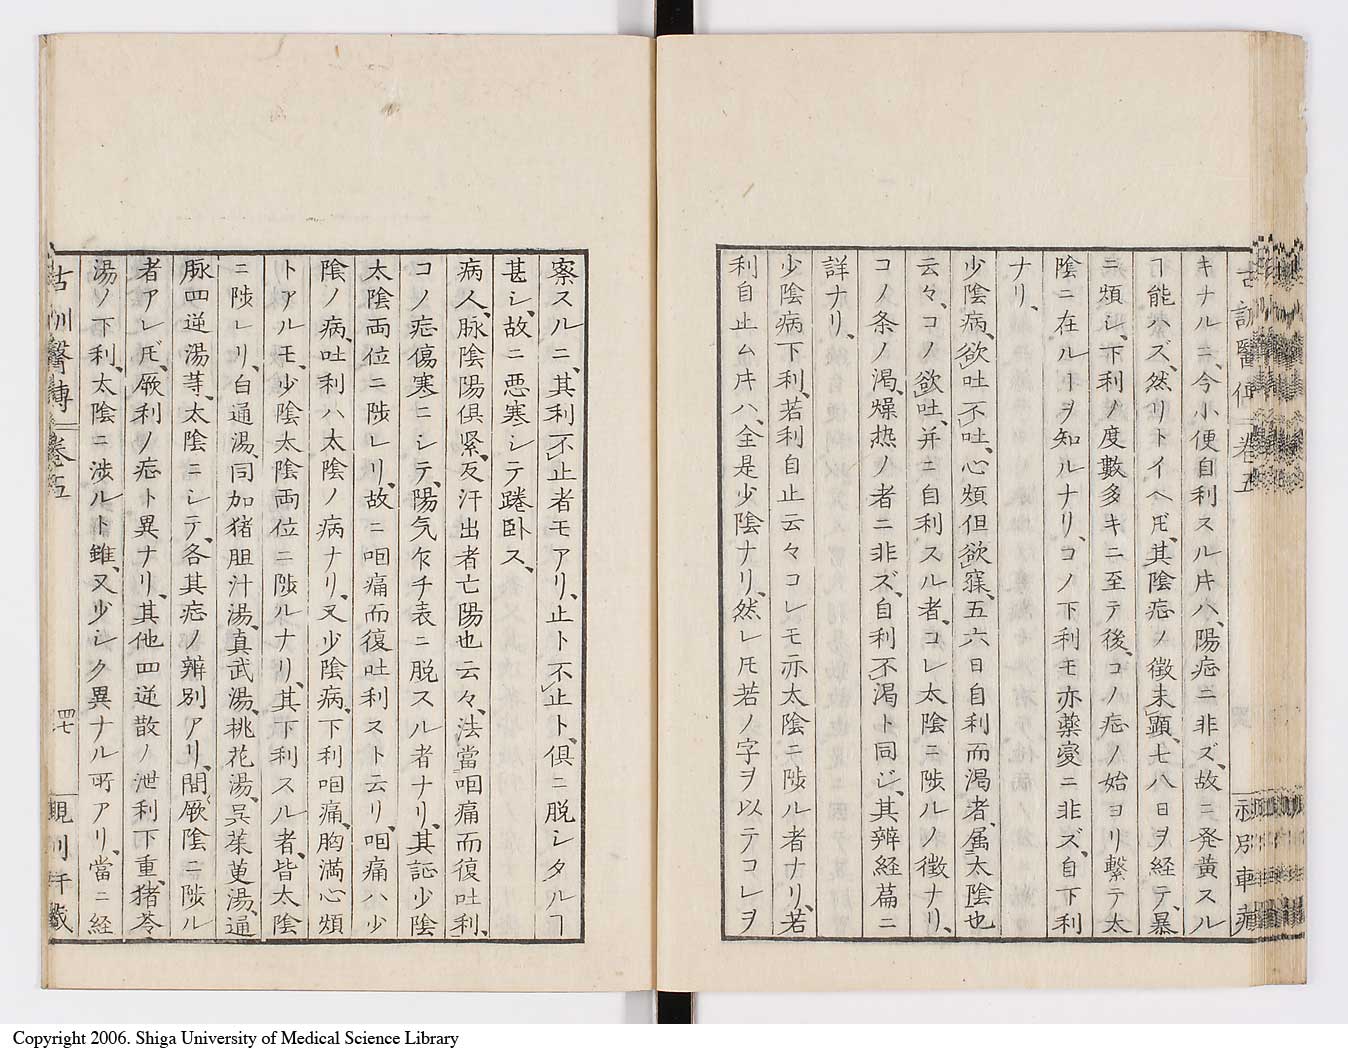 キナルニ、今小便自利スル片ハ、陽症ニ非ズ、故ニ発黄スル
ヿ能ハズ、然リトイヘ𪜈、其陰症ノ徴未顕、七八日ヲ経テ、暴
ニ煩シ、下利ノ度數多キニ至テ後、コノ症ノ始ヨリ繋テ太
陰ニ在ルヿヲ知ルナリ、コノ下利モ亦藥変ニ非ズ、自下利
ナリ、
少陰病、欲吐不吐、心煩但欲寐、五六日自利而渇者、属太陰也
云々、コノ欲吐、并ニ自利スル者、コレ太陰ニ陟ルノ徴ナリ、
コノ条ノ渇、燥热ノ者ニ非ズ、自利不渇ト同ジ、其辨経篇ニ
詳ナリ、
少陰病下利、若利自止云々コレモ亦太陰ニ陟ル者ナリ、若
利自止ム片ハ、全是少陰ナリ、然レ𪜈若ノ字ヲ以テコレヲ
案スルニ、其利不止者モアリ、止ト不止ト、俱ニ脱シタルヿ
甚シ、故ニ悪寒シテ踡卧ス、
病人、脉陰陽俱緊、反汗出者亡陽也云々、法當咽痛而復吐利、
コノ症傷寒ニシテ、陽気乍チ表ニ脱スル者ナリ、其証少陰
太陰両位ニ陟レリ、故ニ咽痛而復吐利スト云リ、咽痛ハ少
陰ノ病、吐利ハ太陰ノ病ナリ、又少陰病、下利咽痛、胸満心煩
トアルモ、少陰太陰両位ニ陟ルナリ、其下利スル者、皆太陰
ニ陟レリ、白通湯、同加猪胆汁湯、真武湯、桃花湯、呉茱萸湯、通
脉四逆湯䓁、太陰ニシテ、各其症ノ辨別アリ、間厥陰ニ陟ル
者アレ𪜈、厥利ノ症ト異ナリ、其他四逆散ノ泄利下重、猪苓
湯ノ下利、太陰ニ渉ルト雖、又少シク異ナル所アリ、當ニ経
古訓醫傳 卷五
四七